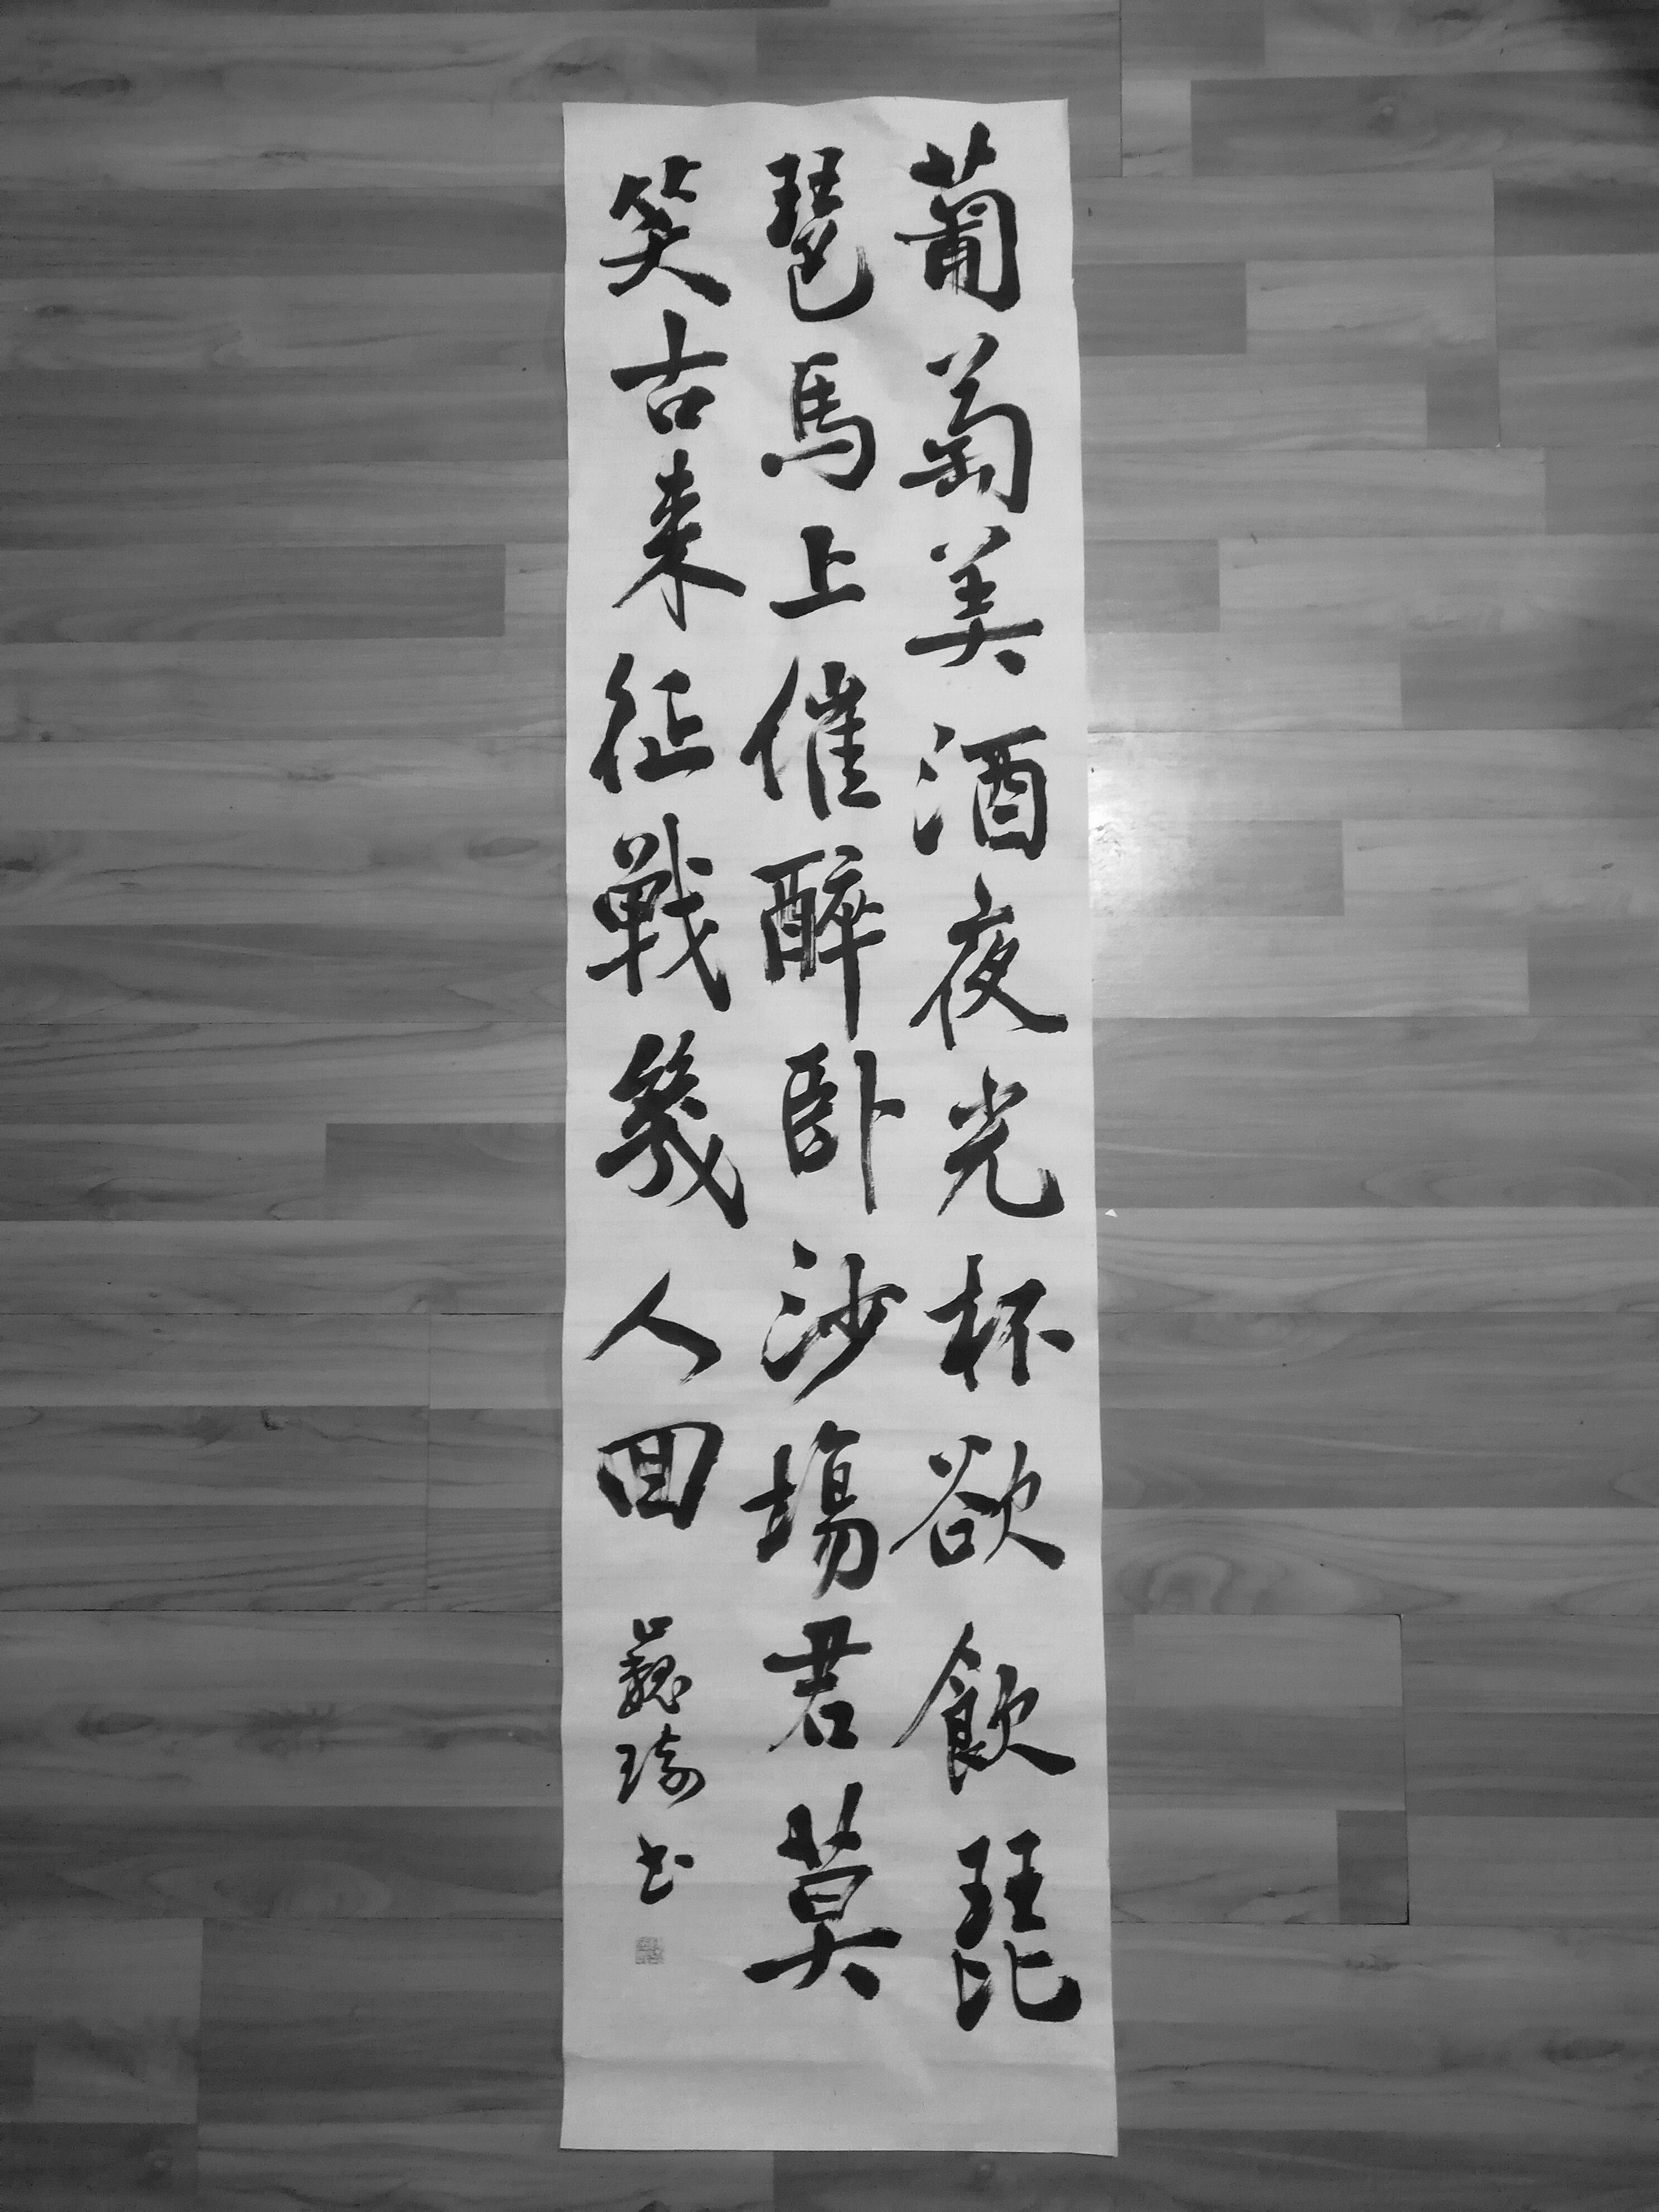 葡萄美酒夜光杯欲飲琵
琶馬上催醉卧沙場君莫
笑古来征戰幾人回
书